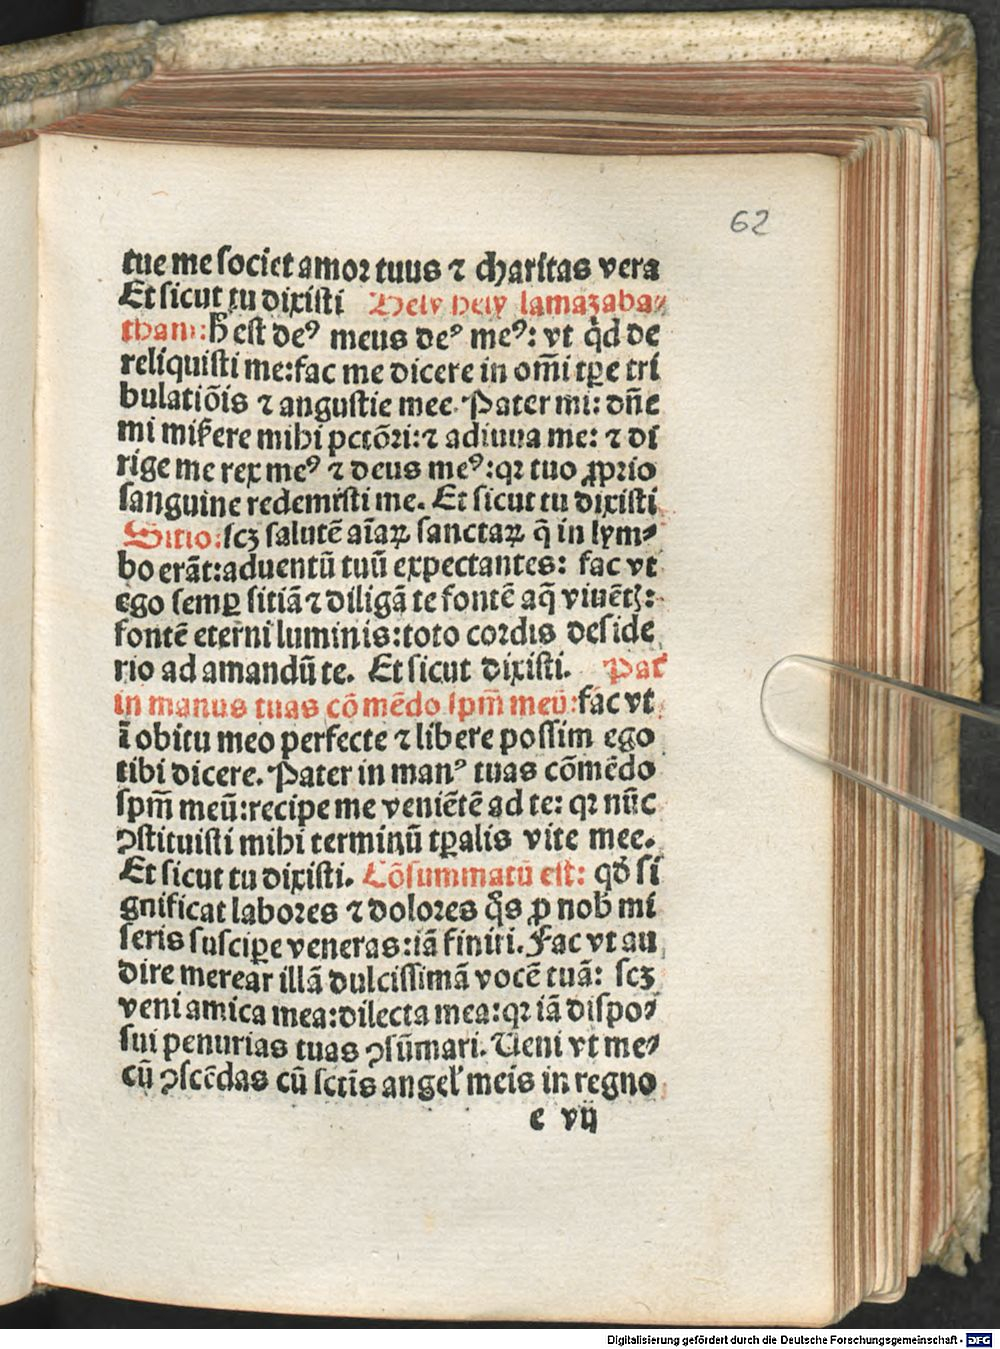 62
tue me ſociet amoꝛ tuus ⁊ charitas vera
Et ſicut tu dixiſti Hely hely lamazaba⸗
thani: ħ eſt deꝰ meus deꝰ meꝰ: vt q̇d de
reliquiſti me: fac me dicere in om̄i tꝑe tri
bulatiōis ⁊ anguſtie mee. Pater mi: dn̄e
mi miẜere mihi pctōri: ⁊ adiuua me: ⁊ di
rige me rex meꝰ ⁊ deus meꝰ: qꝛ tuo ꝓprio
ſanguine redemiſti me. Et ſicut tu dixiſti
Sitio: ſcꝫ ſalutē aīaꝝ ſanctaꝝ q̄ in lym⸗
bo erāt: aduentū tuū expectantes: fac vt
ego ſemꝑ ſitiā ⁊ diligā te fontē aq̄ viuētꝭ:
fontē eterni luminis: toto coꝛdis deſide
rio ad amandū te. Et ſicut dixiſti. Pat̄
in manus tuas cōmēdo ſpm̄ meū: fac vt
ī obitu meo perfecte ⁊ libere poſſim ego
tibi dicere. Pater in manꝰ tuas cōmēdo
ſpm̄ meū: recipe me veniētē ad te: qꝛ nūc
ꝯſtituiſti mihi terminū tꝑalis vite mee.
Et ſicut tu dixiſti. Cōſummatū eſt: qđ ſi
gnificat laboꝛes ⁊ doloꝛes q̄s ꝓ nob̄ mi
ſeris ſuſcipe veneras: iā finiri. Fac vt au
dire merear illā dulciſſimā vocē tuā: ſcꝫ
veni amica mea: dilecta mea: qꝛ iā diſpo⸗
ſui penurias tuas ꝯſūmari. Ueni vt me⸗
cū ꝯſcēdas cū ſctīs angel̓ meis in regno
e vij
Digitalisierung gefördert durch die Deutsche Forschungsgemeinschaft - DFG